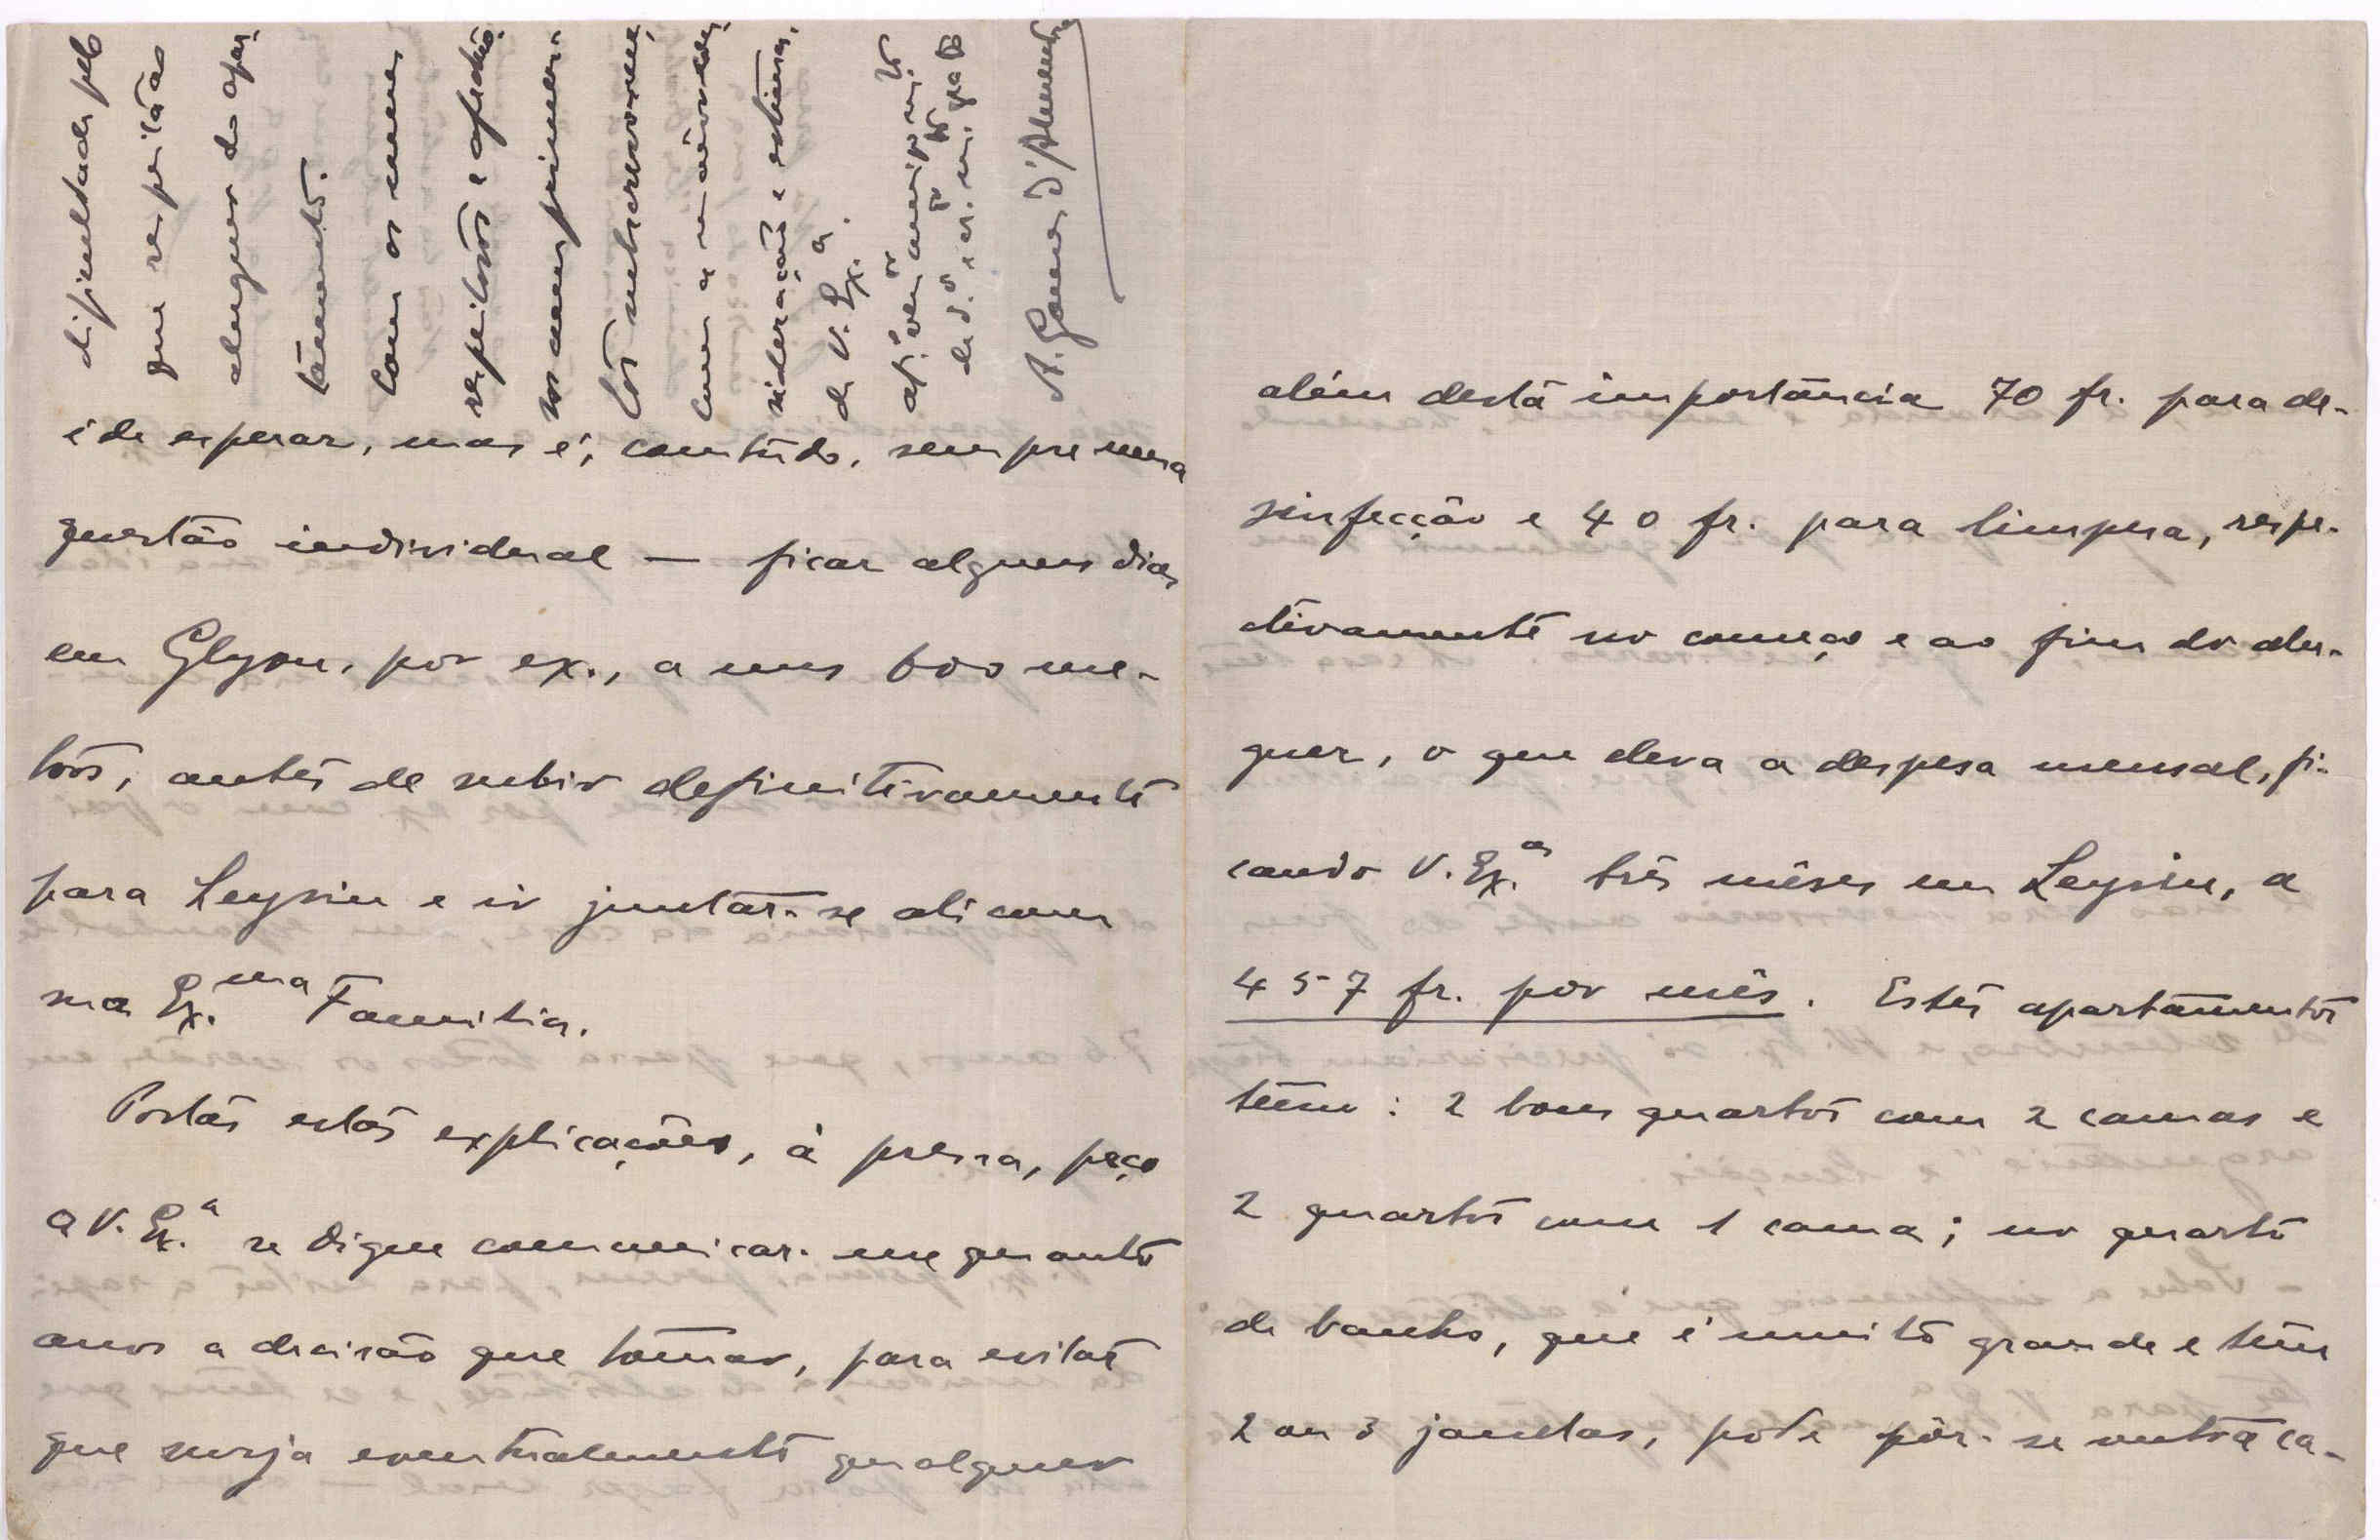 é de esperar, mas é, comtúdo, sempre uma
questão individual — ficar alguns dias
em Glyon, por ex., a uns 600 me-
tros, antes de subir definitivamente
para Leysin e ir juntar-se ali com
sua Ex.ma Familia.
Postas estas explicações, à pressa, peço
a V. Ex.a se digne communicar-me quanto
anos a decisão que tomar, para evitar
que surja eventualmente qualquer
dificuldade pelo
que respeita ao
aluguer do apar-
tamento.
Com os meus
respeitosos e afectuo-
sos cumprimen-
tos subscrevo-me,
com a maior con-
sideração e estima,
de V. Ex.a
at.o ven.or amigo m.to
ded.o e cr. m. grato
A. Gomes d'Almendra
além desta importancia 70 fr. para de-
sinfecção e 40 fr. para limpesa, respe-
ctivamente no começo e ao fim do alu-
guer, o que eleva a despesa mensal, fi-
cando V. Ex.as três mêses em Leysin, a
457 fr. por mês. Estes apartamentos
teem: 2 bons quartos com 2 camas e
2 quartos com 1 cama; no quarto
de banho, que é muito grande e tem
2 ou 3 janelas, pode pôr-se outra ca-